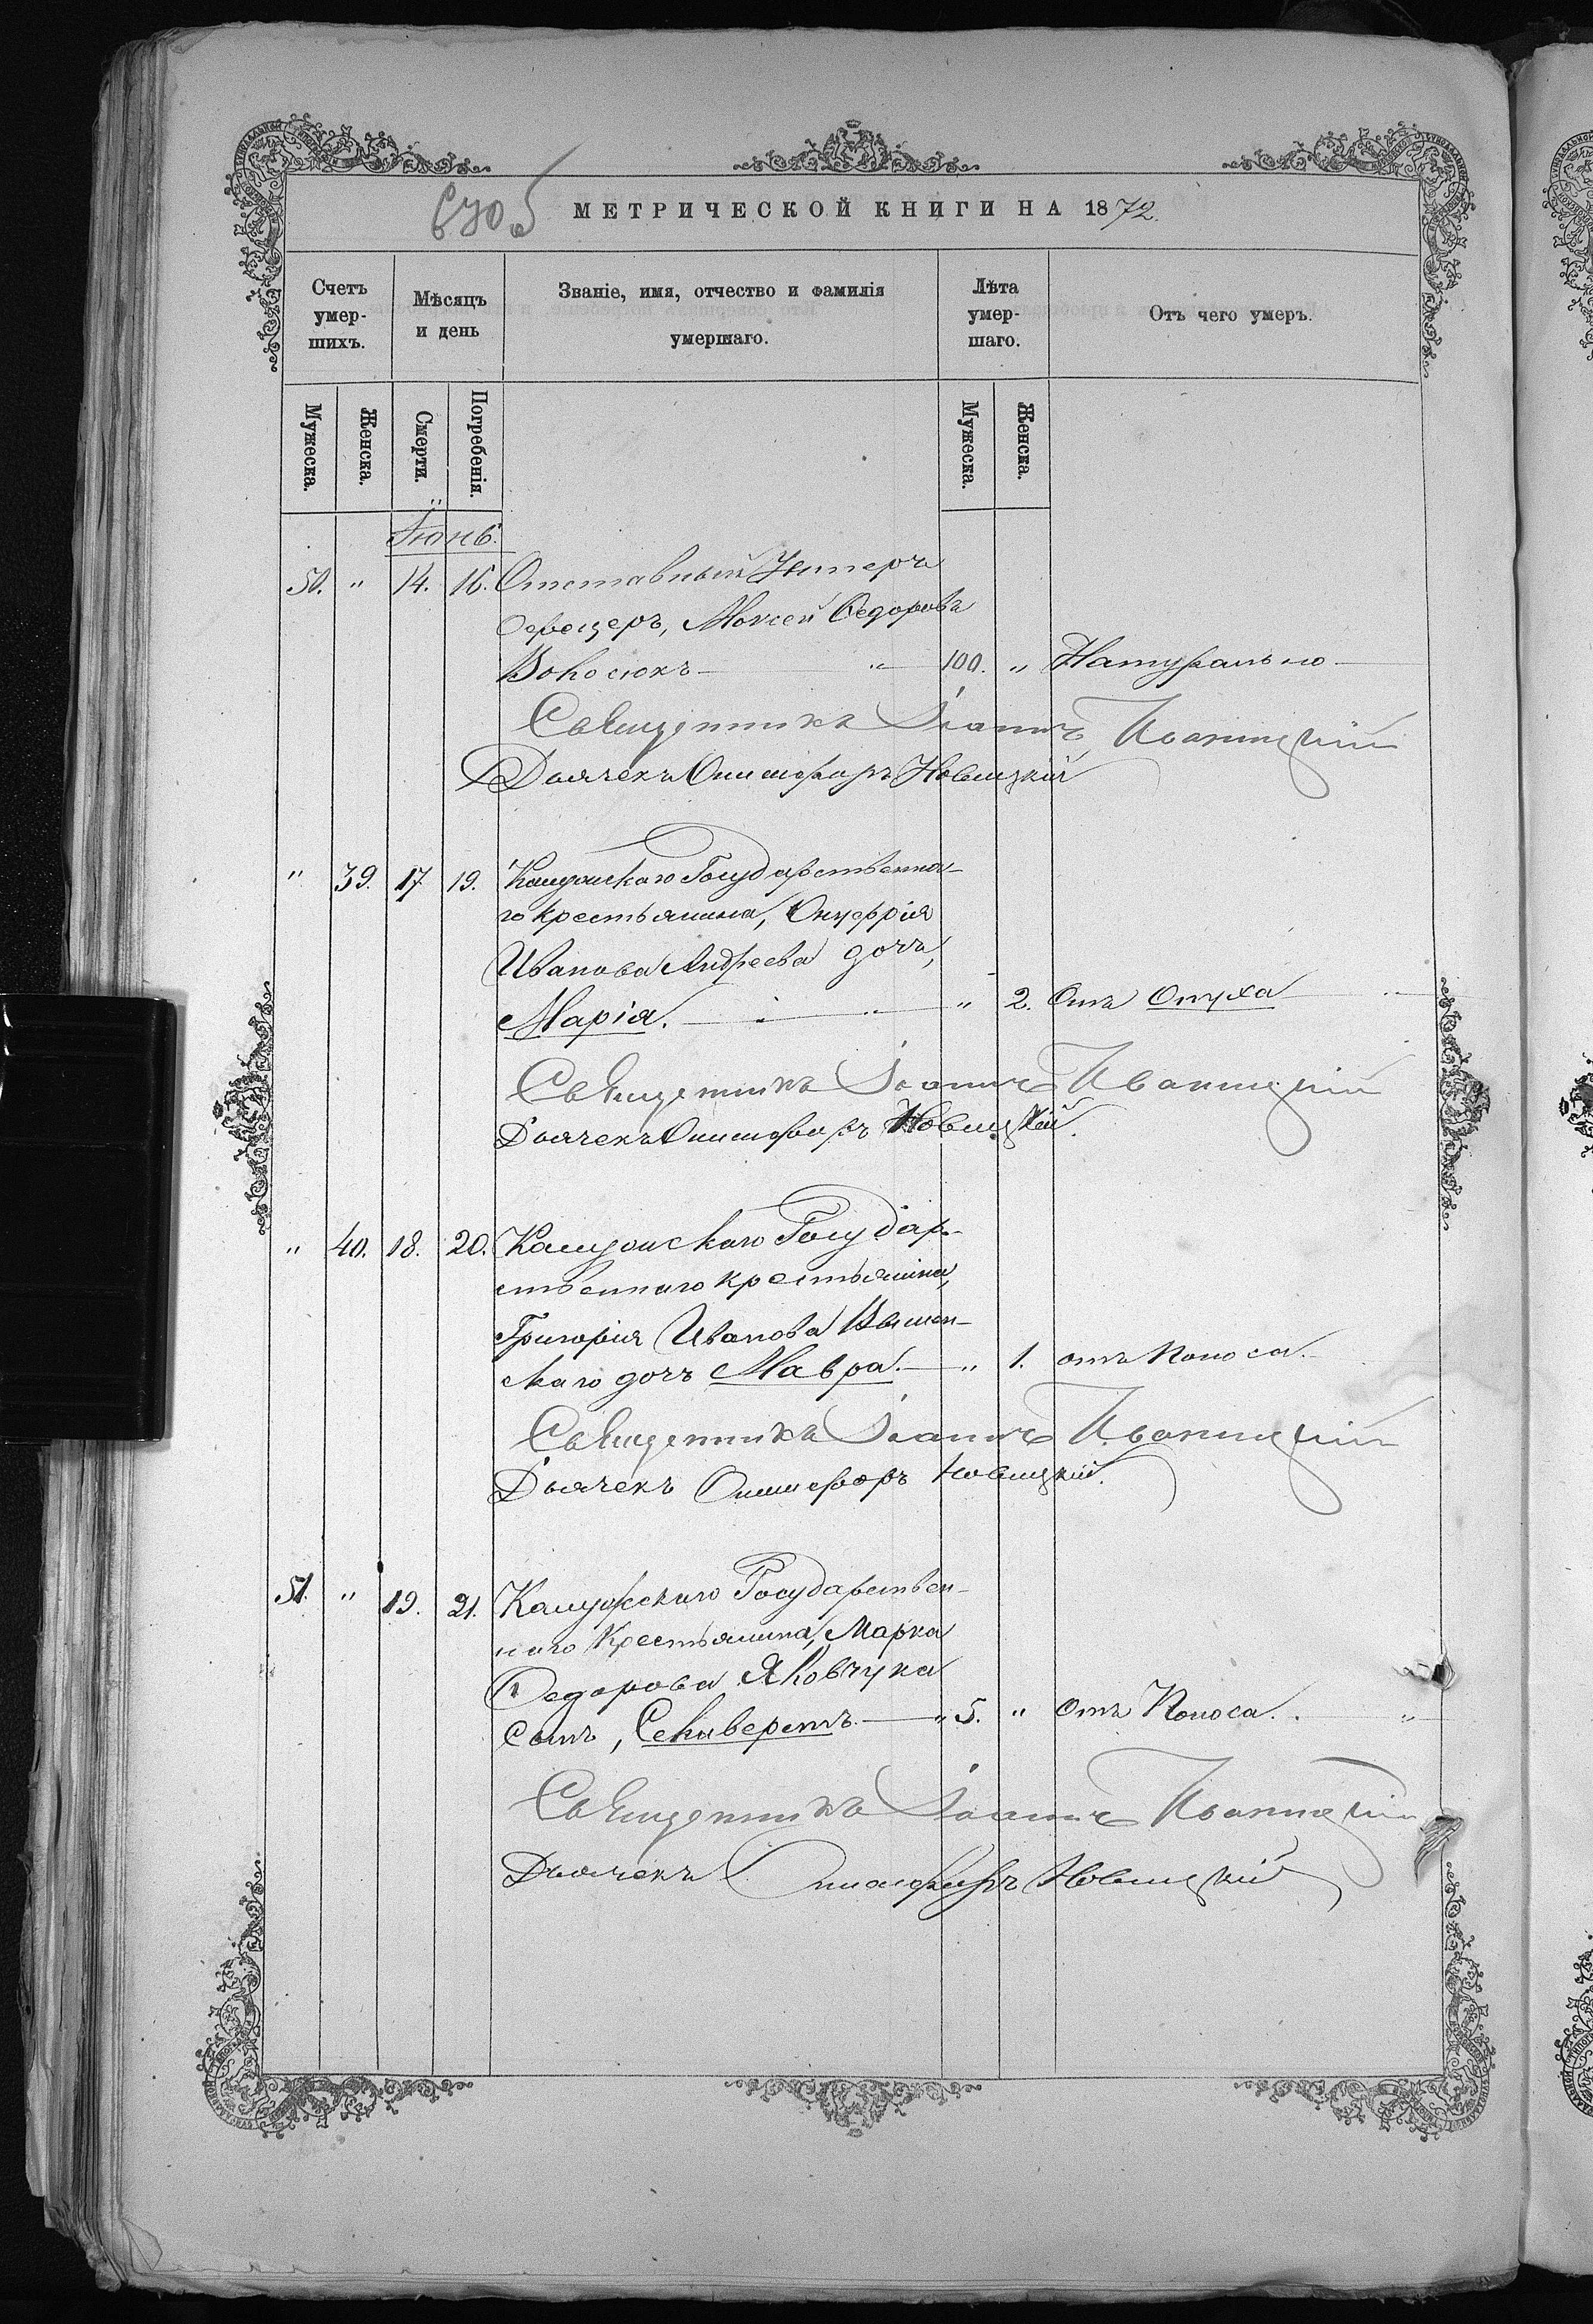 МЕТРИЧЕСКОЙ КНИГИ НА 1872.
Счетъ умер-шихъ.
Мѣсяцъ и день
Званіе, имя, отчество и фамилія умершаго.
Лѣта умер-шаго.
Отъ чего умеръ.
Мужеска.
Женска.
Смерти.
Погребенія.
Мужеска.
Женска.
Іюнь.
50. " 14. 16. Отставный Унтеръ
Офецеръ, Моисей Ѳедоровъ
100. " Натурально
Священникъ Іоаннъ Иваницкій
Дьячекъ Онисифоръ Новицкій
" 39. 17 19. Государственна-
го крестьянина, Онуфрія
Иванова Андреева дочь,
Марія. " 2. Отъ Опуха
Священникъ Іоаннъ Иваницкій
Дьячекъ Онисифоръ Новицкій.
" 40. 18. 20. Государ-
ственнаго крестьянина,
Григорія Иванова
скаго дочь Мавра. " 1. отъ Поноса.
Священникъ Іоаннъ Иваницкій
Дьячекъ Онисифоръ Новицкій.
51. " 19. 21. Государствен-
наго Крестьянина, Марка
Ѳедорова Яковчука
Сынъ, " 5. " Отъ Поноса. "
Священникъ Іоаннъ Иваницкій
Дьячекъ Онисифоръ Новицкій